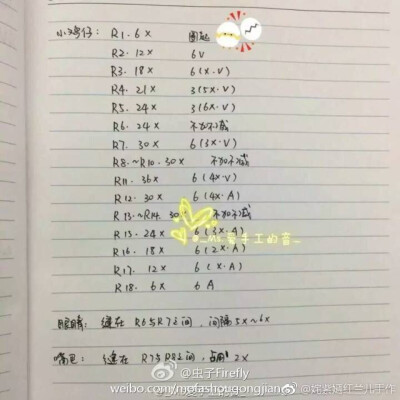 小鸡仔: R1. 6X 圈起
R2. 12X 6V
R3. 18X 6(X.V)
R4. 21X 3(5X.V)
R5. 24X 3(6X.V)
R6. 24X 不加不减
R7. 30X 6(3X.V)
R8.~R10. 30X 不加不减
R11. 36X 6(4X.V)
R12. 30X 6(4X.A)
R13.~R14. 30X 不加不减
R15. 24X 6(3X.A)
@_Ms.爱手工的音_
R16. 18X 6(2X.A)
R17. 12X 6(X.A)
R18. 6X 6A
眼睛: 缝在R6与R7之间, 间隔5X~6X
嘴巴: 缝在R7与R8之间, 占用2X
@虫子Firefly
weibo.com/mofashougongjiang